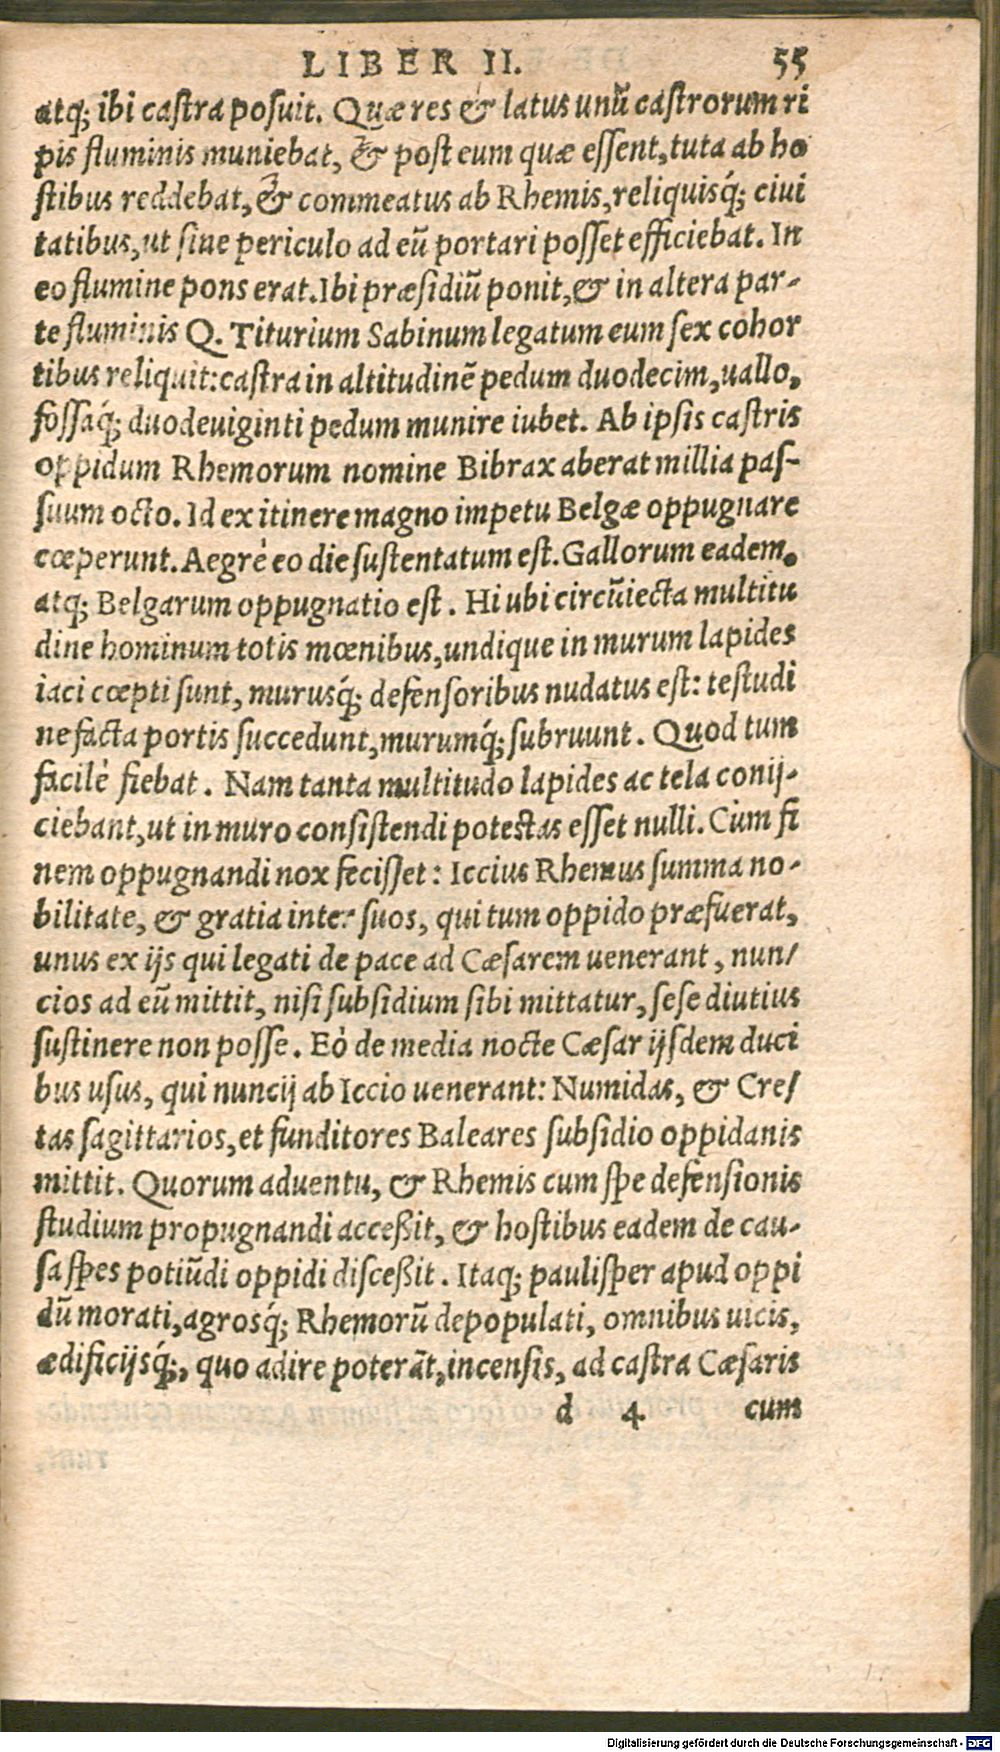 LIBER II. 55
atq; ibi castra posuit. Quæ res & latus unũ castrorum ri
pis fluminis muniebat, & post eum quæ essent, tuta ab ho
stibus reddebat, & commeatus ab Rhemis, reliquisq́; ciui
tatibus, ut sine periculo ad eũ portari posset efficiebat. In
eo flumine pons erat. Ibi præsidiũ ponit, & in altera par-
te fluminis Q. Titurium Sabinum legatum eum sex cohor
tibus reliquit: castra in altitudinẽ pedum duodecim, uallo,
fossaq́; duodeuiginti pedum munire iubet. Ab ipsis castris
oppidum Rhemorum nomine Bibrax aberat millia pas-
suum octo. Id ex itinere magno impetu Belgæ oppugnare
cœperunt. Aegrè eo die sustentatum est. Gallorum eadem.
atq; Belgarum oppugnatio est. Hi ubi circũiecta multitu
dine hominum totis mœnibus, undique in murum lapides
iaci cœpti sunt, murusq́; defensoribus nudatus est: testudi
ne facta portis succedunt, murumq́; subruunt. Quod tum
facilè fiebat. Nam tanta multitudo lapides ac tela conij-
ciebant, ut in muro consistendi potestas esset nulli. Cùm fi
nem oppugnandi nox fecisset: Iccius Rhemus summa no-
bilitate, & gratia inter suos, qui tum oppido præfuerat,
unus ex ijs qui legati de pace ad Cæsarem uenerant, nun/
cios ad eũ mittit, nisi subsidium sibi mittatur, sese diutius
sustinere non posse. Eò de media nocte Cæsar ijsdem duci
bus usus, qui nuncij ab Iccio uenerant: Numidas, & Cre/
tas sagittarios, et funditores Baleares subsidio oppidanis
mittit. Quorum aduentu, & Rhemis cum spe defensionis
studium propugnandi acceßit, & hostibus eadem de cau-
sa spes potiũdi oppidi disceßit. Itaq; paulisper apud oppi
dũ morati, agrosq́; Rhemorũ depopulati, omnibus uicis,
ædificijsq́;, quo adire poterãt, incensis, ad castra Cæsaris
d 4 cum
Digitalisierung gefördert durch die Deutsche Forschungsgemeinschaft - DFG